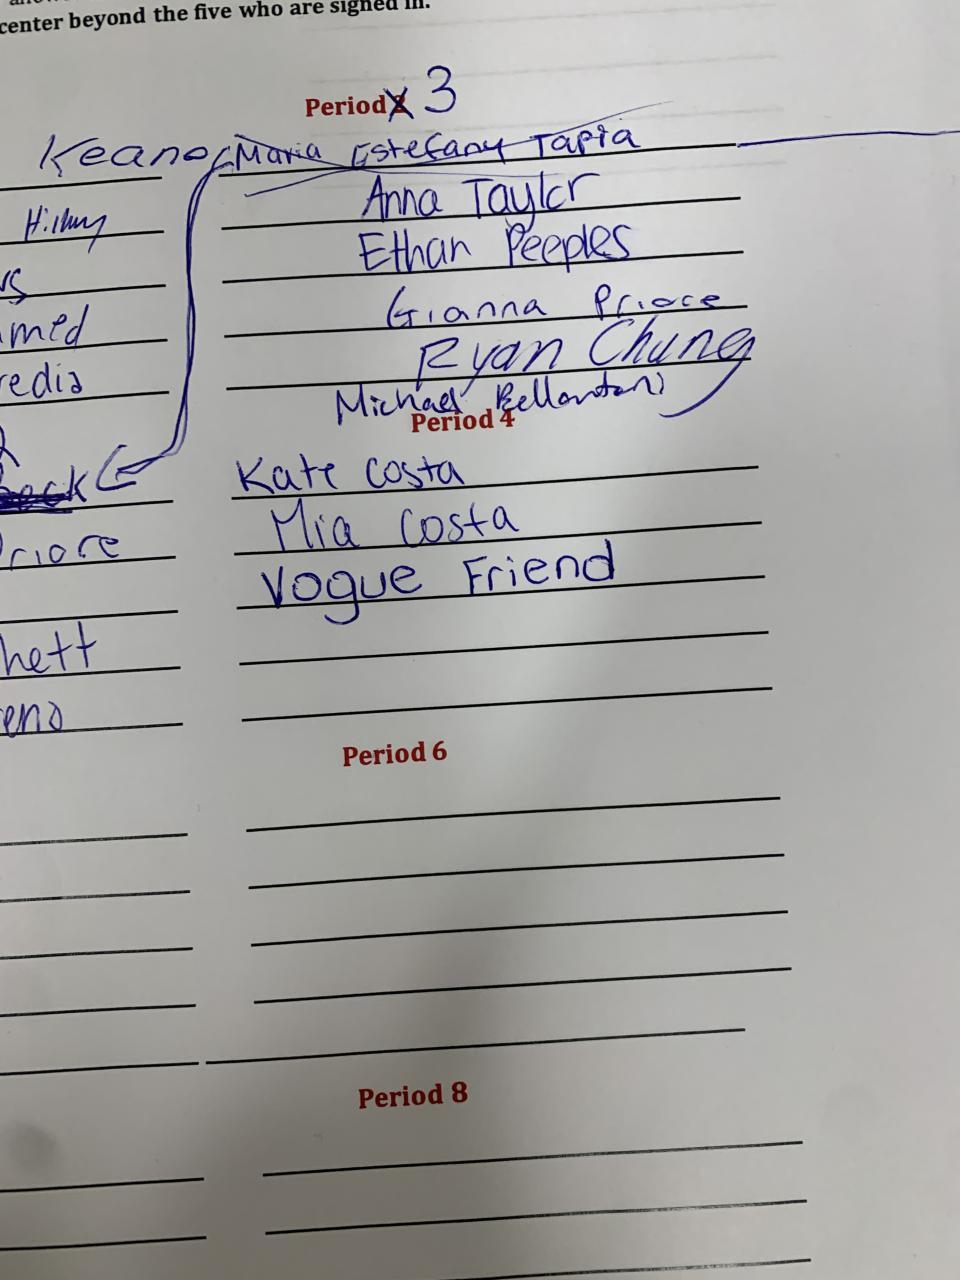 center beyond the five who are signed in.
Period 3
Keano
Maria Estefany Tapia
Anna Taylor
Ethan Peeples
Gianna Priore
Ryan Chung
Michael Bellantoni
Period 4
Kate Costa
Mia Costa
Vogue Friend
Period 6
Period 8
med
redia
riore
hett
eno